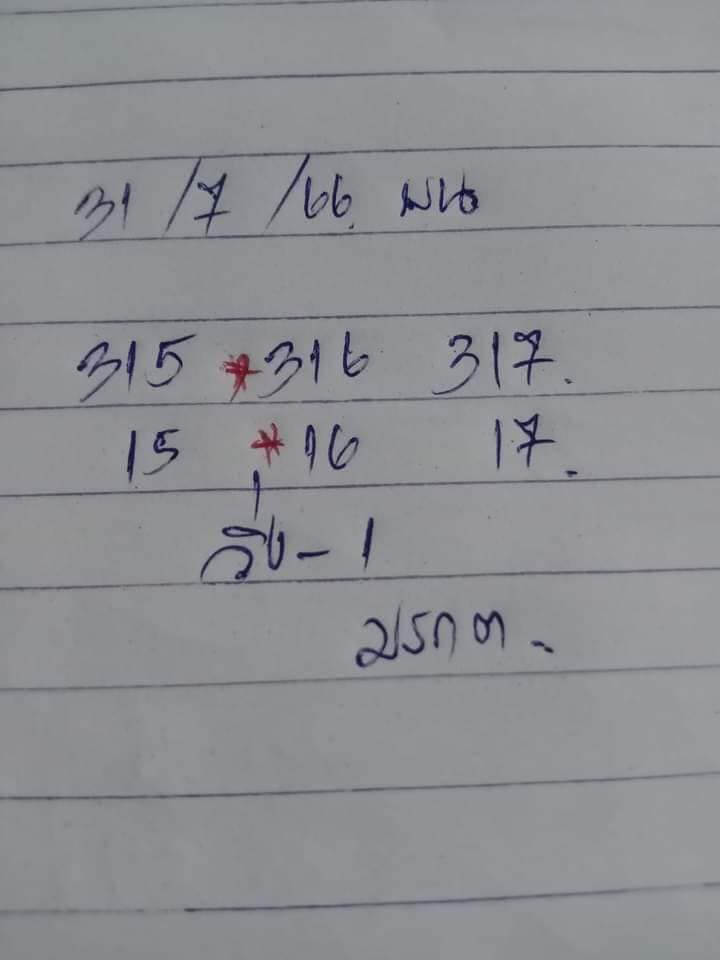 31/7/66 มน
315 *316 317.
15 *16 17.
วิ่ง-1
มรกต.